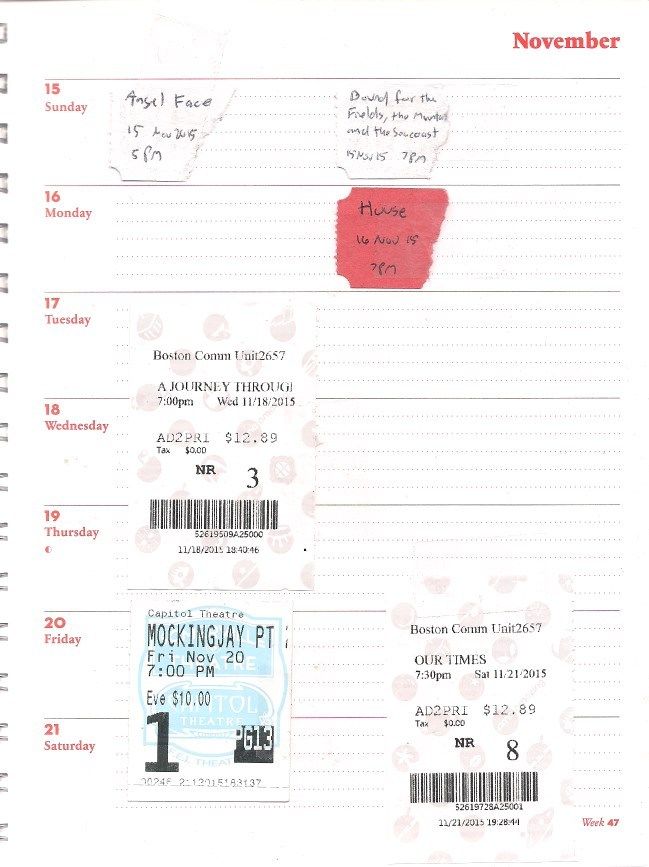 November
15
Sunday
Angel Face
15 Nov 2015
5 PM
Bound for the
Fields, the
and the Seacoast
15 Nov 15 7PM
16
Monday
House
16 Nov 15
7PM
17
Tuesday
Boston Comm Unit2657
A JOURNEY THROUGH
7:00pm Wed 11/18/2015
AD2PRI $12.89
Tax $0.00
NR 3
52619509A25000
11/18/2015 18:40:46
18
Wednesday
19
Thursday
20
Friday
Capitol Theatre
MOCKINGJAY PT
Fri Nov 20
7:00 PM
Eve $10.00
THEATRE
1
PG13
Boston Comm Unit2657
OUR TIMES
7:30pm Sat 11/21/2015
AD2PRI $12.89
Tax $0.00
NR 8
52619728A25001
11/21/2015 19:28:44
21
Saturday
Week 47